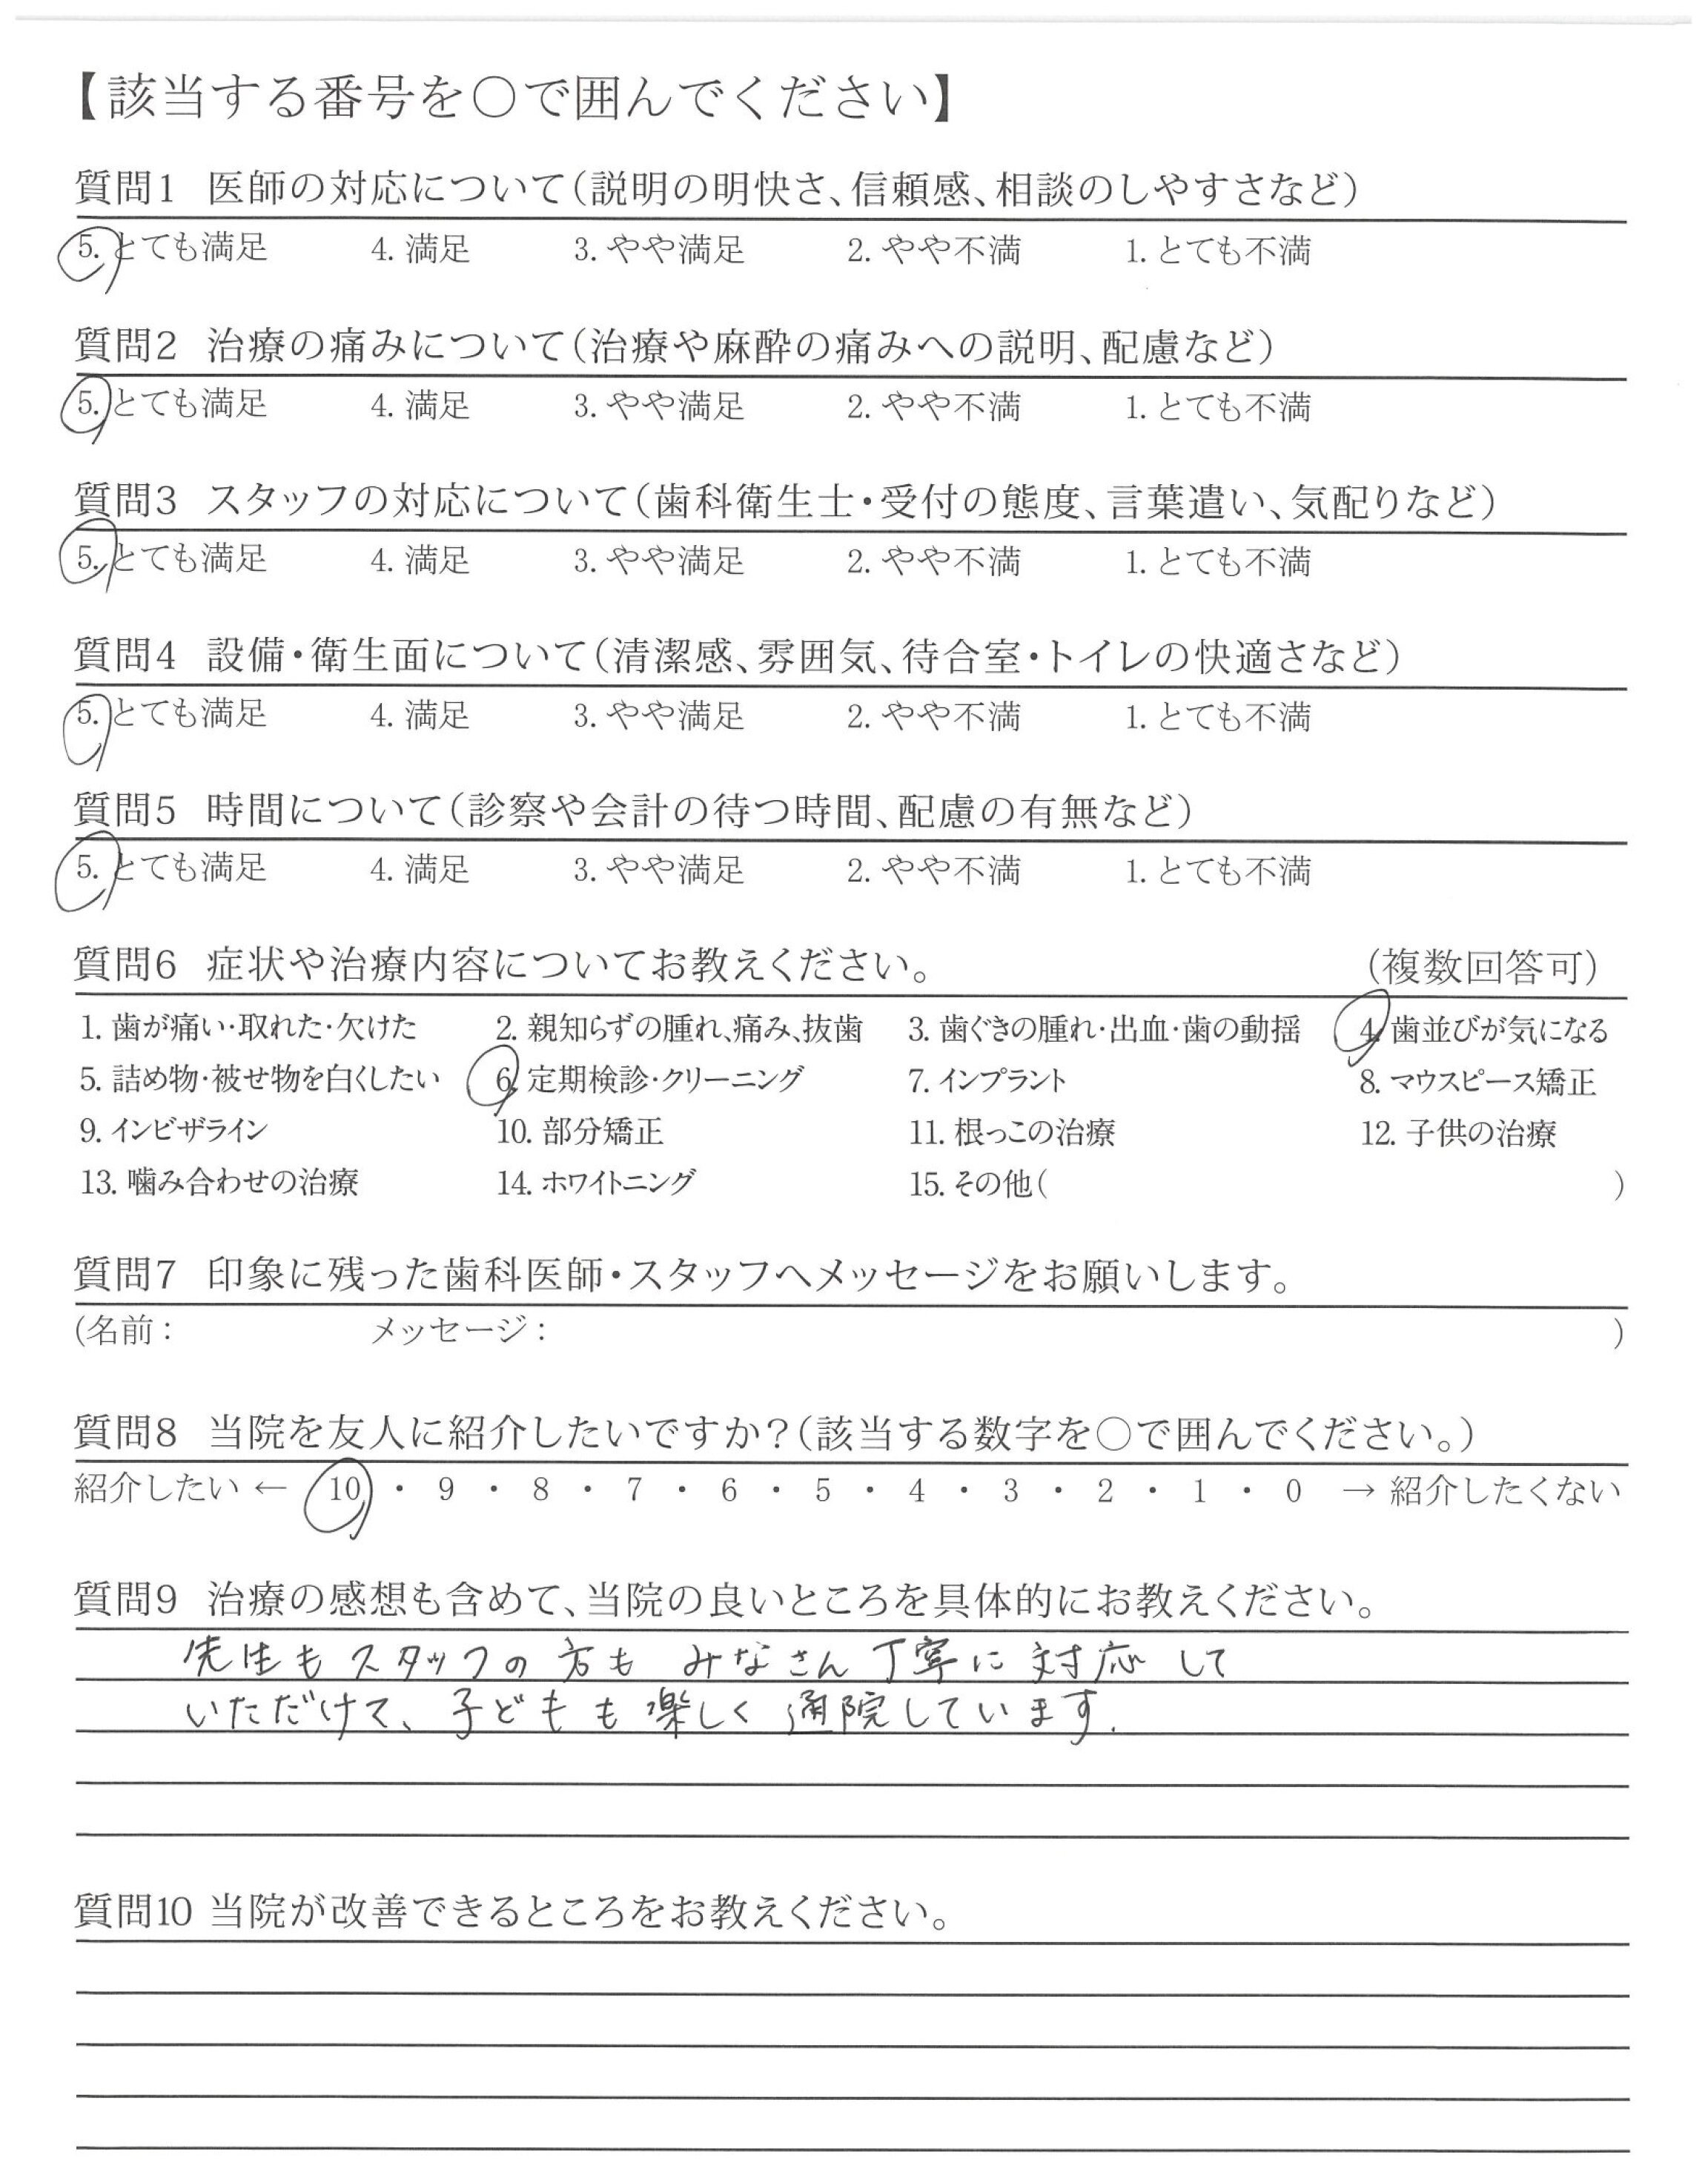 【該当する番号を○で囲んでください】
質問1 医師の対応について（説明の明快さ、信頼感、相談のしやすさなど）
5. とても満足 4. 満足 3. やや満足 2. やや不満 1. とても不満
質問2 治療の痛みについて（治療や麻酔の痛みへの説明、配慮など）
5. とても満足 4. 満足 3. やや満足 2. やや不満 1. とても不満
質問3 スタッフの対応について（歯科衛生士・受付の態度、言葉遣い、気配りなど）
5. とても満足 4. 満足 3. やや満足 2. やや不満 1. とても不満
質問4 設備・衛生面について（清潔感、雰囲気、待合室・トイレの快適さなど）
5. とても満足 4. 満足 3. やや満足 2. やや不満 1. とても不満
質問5 時間について（診察や会計の待つ時間、配慮の有無など）
5. とても満足 4. 満足 3. やや満足 2. やや不満 1. とても不満
質問6 症状や治療内容についてお教えください。 （複数回答可）
1. 歯が痛い・取れた・欠けた 2. 親知らずの腫れ、痛み、抜歯 3. 歯ぐきの腫れ・出血・歯の動揺 4. 歯並びが気になる
5. 詰め物・被せ物を白くしたい 6. 定期検診・クリーニング 7. インプラント 8. マウスピース矯正
9. インビザライン 10. 部分矯正 11. 根っこの治療 12. 子供の治療
13. 噛み合わせの治療 14. ホワイトニング 15. その他（ ）
質問7 印象に残った歯科医師・スタッフへメッセージをお願いします。
（名前： メッセージ： ）
質問8 当院を友人に紹介したいですか？（該当する数字を○で囲んでください。）
紹介したい ← 10 ・ 9 ・ 8 ・ 7 ・ 6 ・ 5 ・ 4 ・ 3 ・ 2 ・ 1 ・ 0 → 紹介したくない
質問9 治療の感想も含めて、当院の良いところを具体的にお教えください。
先生もスタッフの方も みなさん丁寧に対応して
いただけて、子どもも楽しく通院しています.
質問10 当院が改善できるところをお教えください。